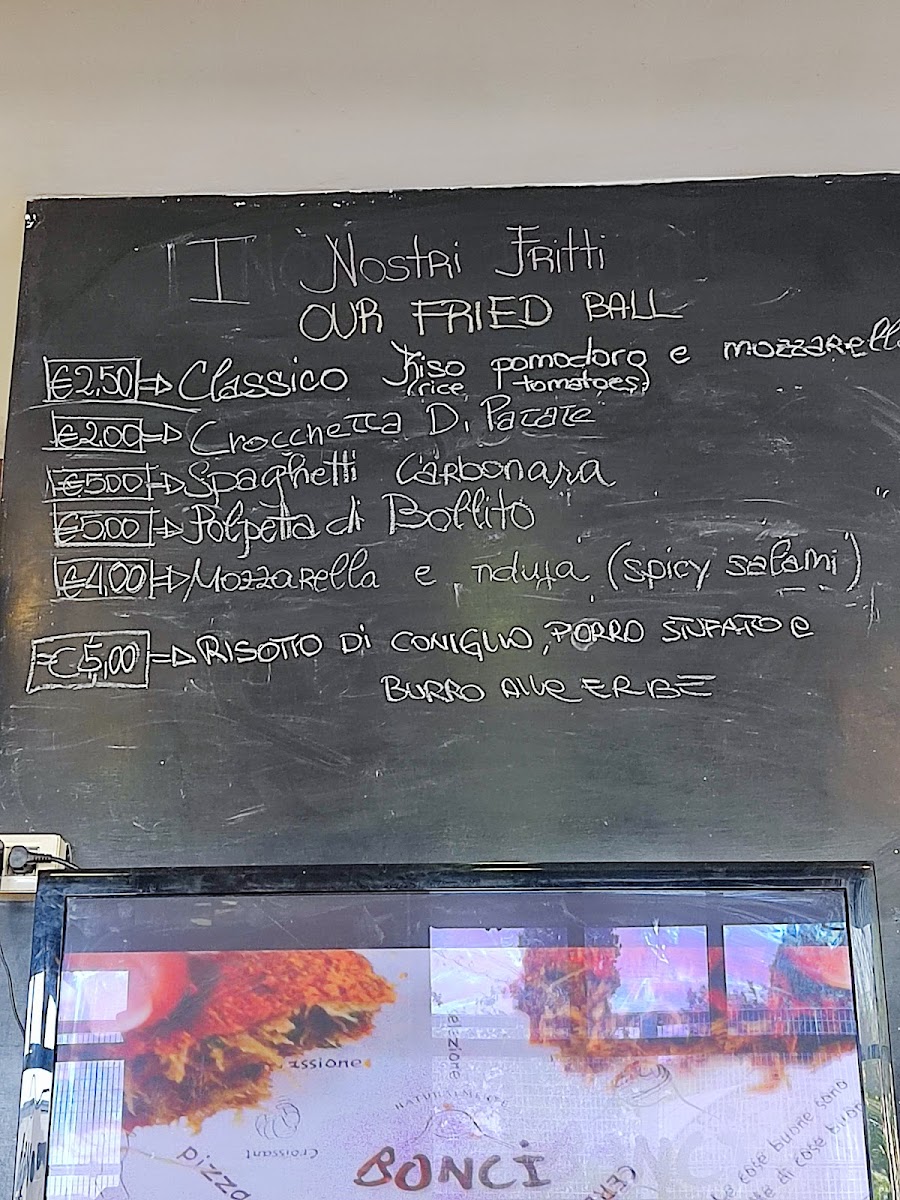 I Nostri Fritti
OUR FRIED BALL
€2,50 ⇒ Classico Riso pomodoro e mozzarella
(rice tomatoes)
€2,00 ⇒ Crocchetta Di Patate
€5,00 ⇒ Spaghetti Carbonara
€5,00 ⇒ Polpetta di Bollito
€4,00 ⇒ Mozzarella e nduja (spicy salami)
€5,00 ⇒ RISOTTO DI CONIGLIO, PORRO STUFATO e
BURRO Alle ERBE
assione
elezione
NATURALMENTE
Croissant
pizza
BONCI
e cose buone sono
di cose buon